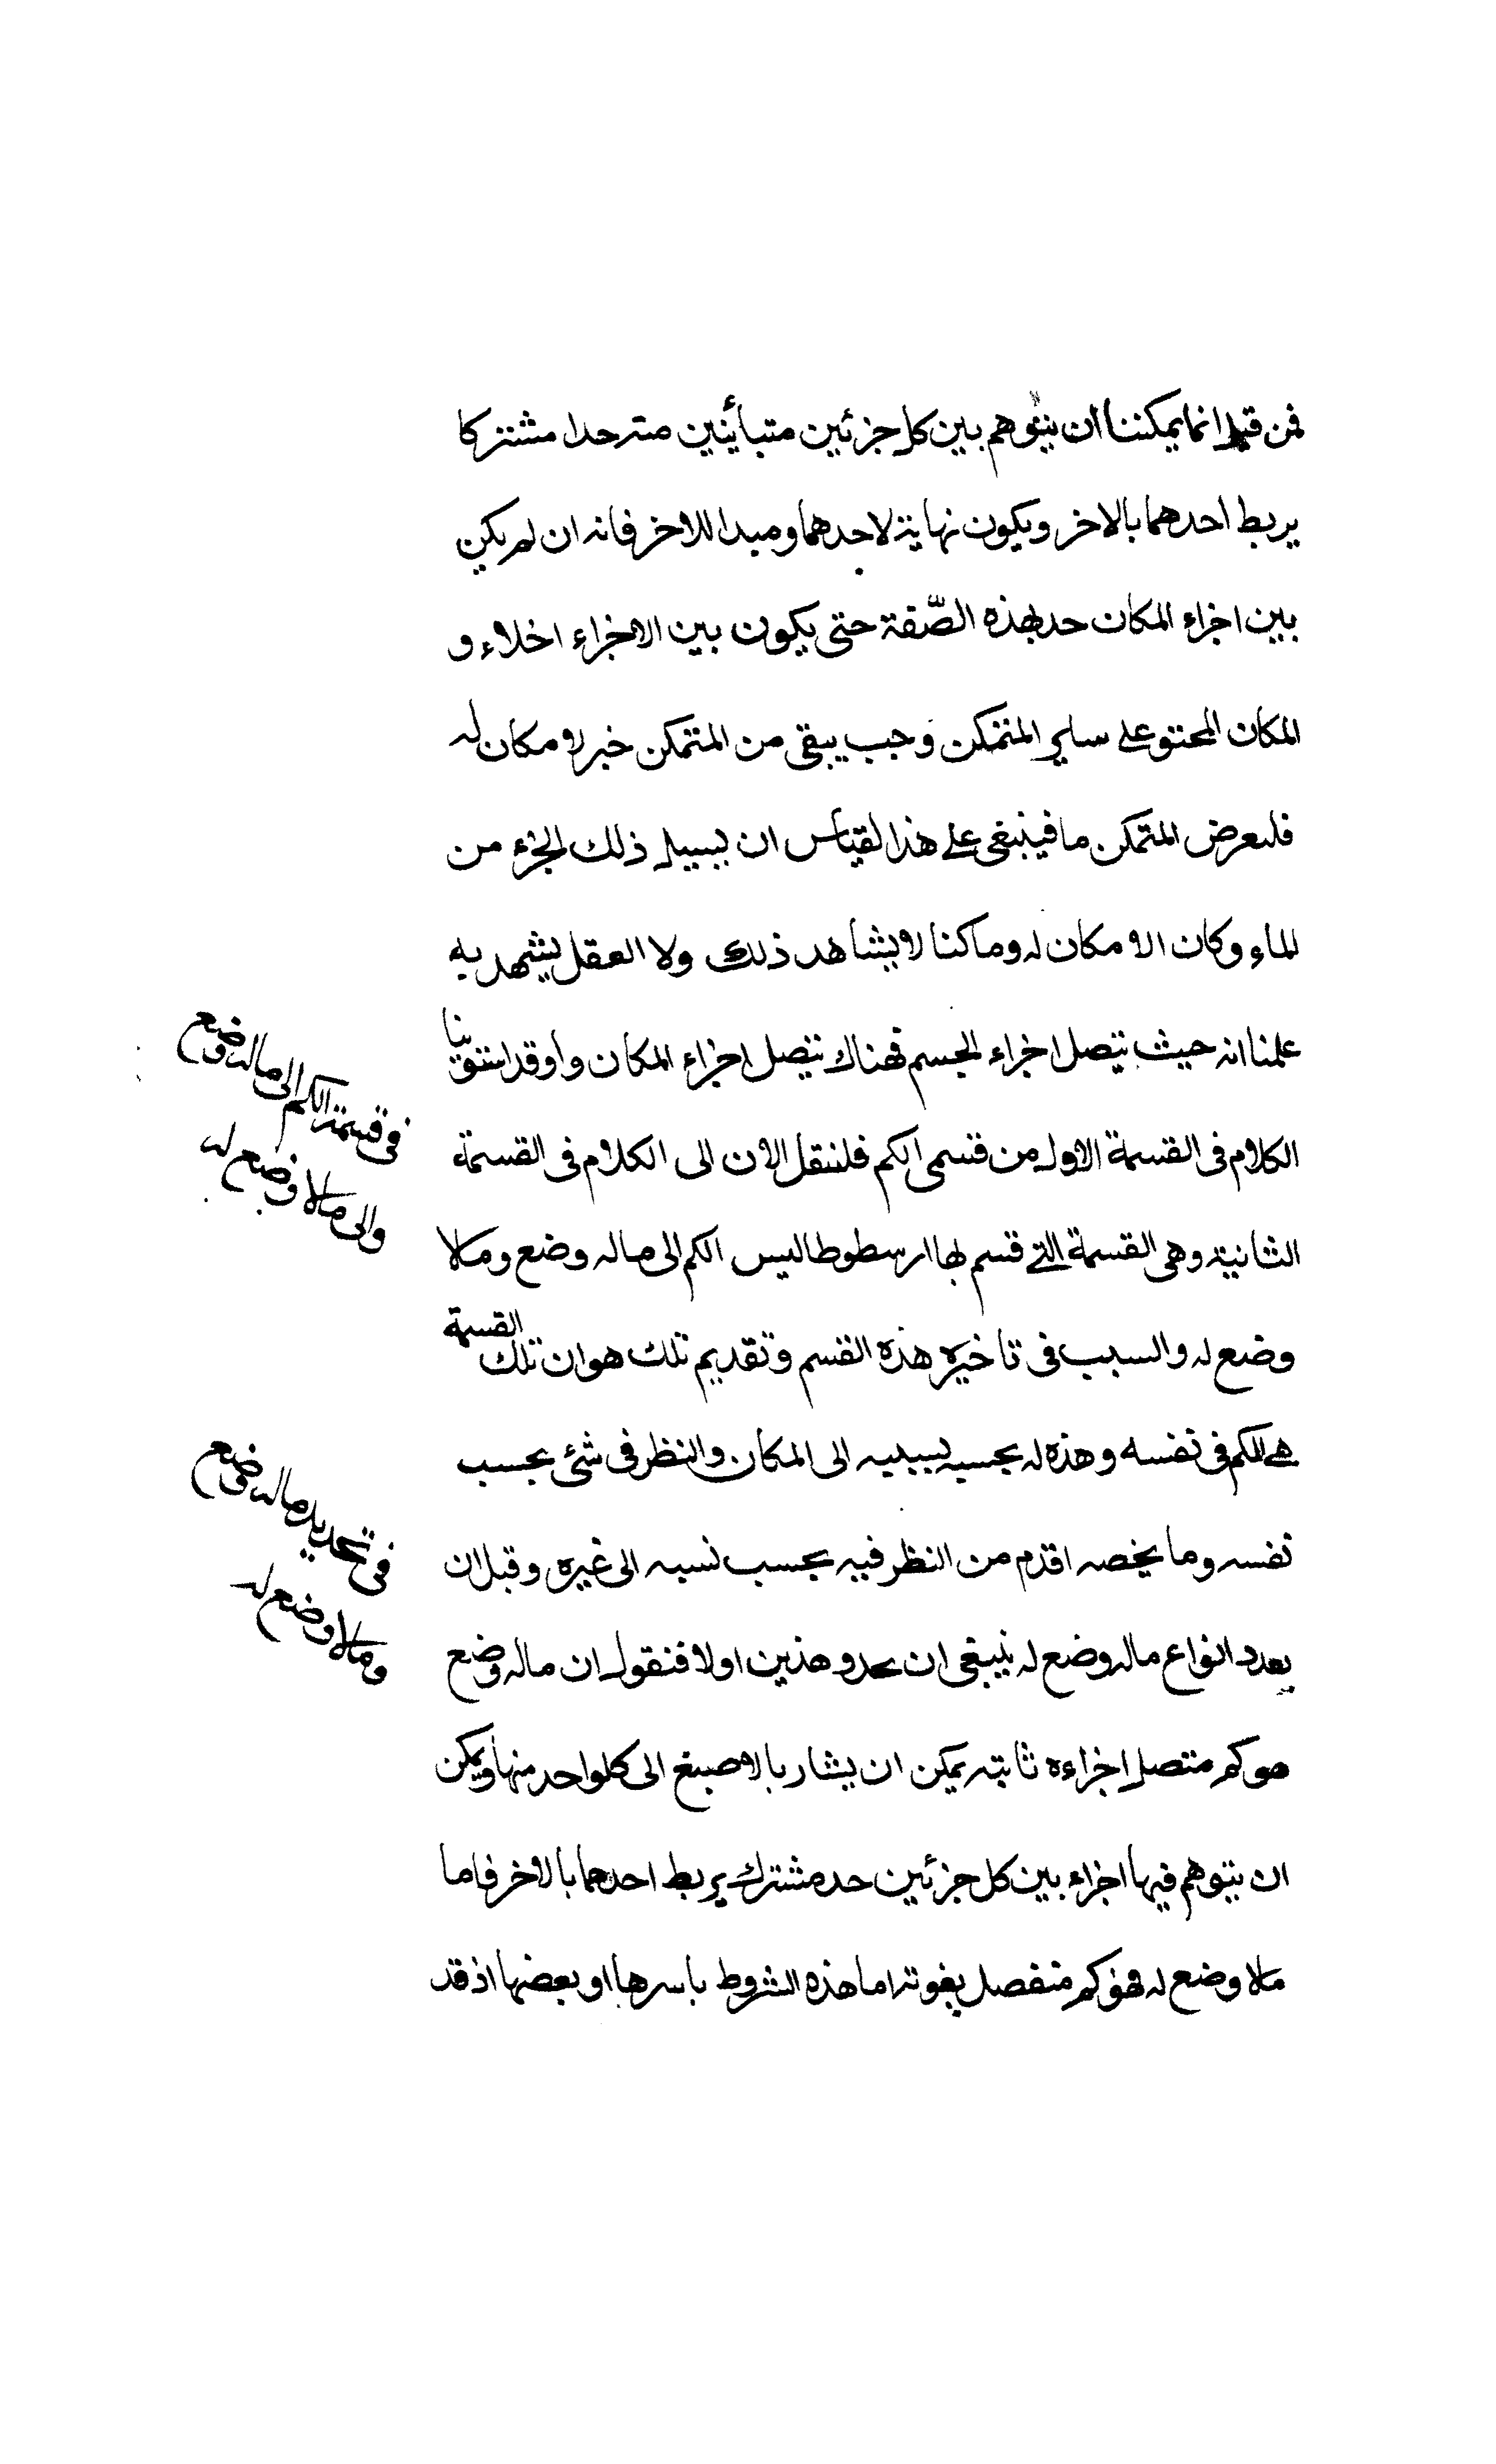 فمن قبل انما يمكننا ان يتوهم بين كل جزئين متبأينين منه حدا مشتركا
يربط احدهما بالاخر ويكون نهاية لاحدهما ومبدا للاخر فانه ان لم يكن
بين اجزاء المكان حد بهذه الصّفة حتى يكون بين الاجزاء اخلاء و
المكان المحتو على ساير المتمكن وجب يبقى من المتمكن خبر لا مكان له
فلىعرض المتمكن ما فينبغى على هذا لقياس ان يسيل ذلك الجزء من
الماء وكان لا مكان له وما كنا لا يشاهد ذلك ولا العقل يشهد به
علمنا انه حيث يتصل اجزاء الجسم فهناك يتصل اجزاء المكان واوقد استوفينا
الكلام فى القسمة الاولى من قسمى الكم فلننقل الان الى الكلام فى القسمة
الثانية وهى القسمة التے قسم بها ارسطوطاليس الكم الى ماله وضع وما لا
وضع له والسبب فى تاخيره هذه القسم وتقديم تلك هو ان تلك القسمة
هے للكم فى نفسه وهذه له بحسب الى المكان والنظر فى شئ بحسب
نفسه وما يخصه اقدم من النظر فيه بحسب نسبه الى غيره وقبل ان
يعدد انواع ماله وضع له ينبغى ان ىحدو هذين اولا فنقول ان ماله وضع
هو كم متصل اجزاءه ثابته يمكن ان يشار بالاصبغ الى كلواحد منها ويمكن
ان يتوهم فيها اجزاء بين كل جزئين حد مشترك يربط احدهما بالاخر فاما
ما لا وضع له فهو كم منفصل يفوته اما هذه الشروط باسرها او بعضها اذ قد
فى قسمة الكم الى ماله وضع
والى ما لا وضع له
فى تحديد ماله وضع
وما لا وضع له